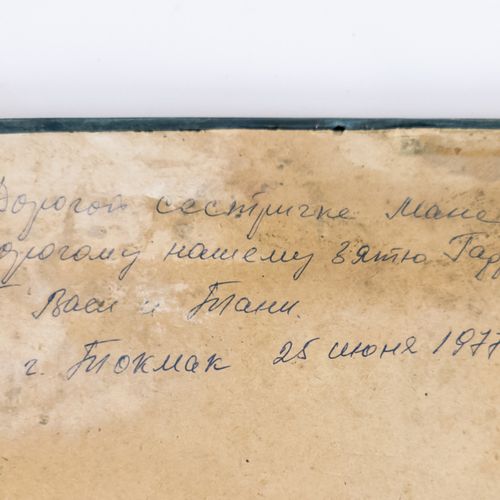 Дорогой сестричке Мане
дорогому нашему зятю
Васи и Тани.
г. Токмак 25 июня 1977